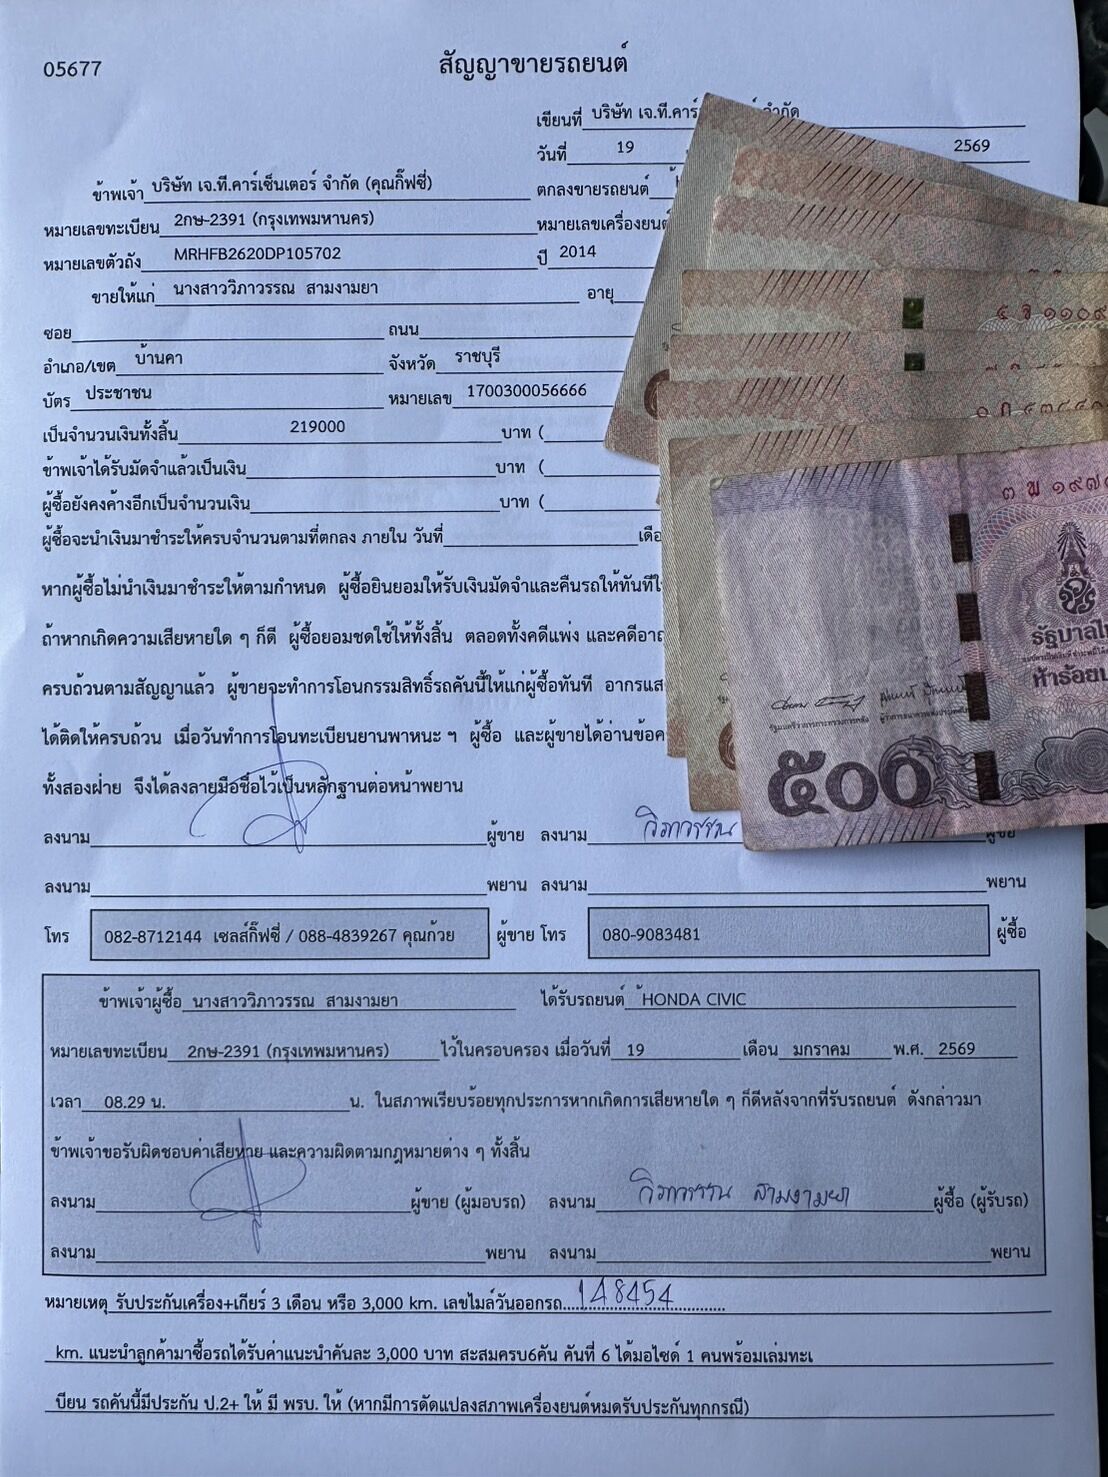 05677
สัญญาขายรถยนต์
เขียนที่ บริษัท เจ.ที.คาร์ จำกัด
วันที่ 19 2569
ข้าพเจ้า บริษัท เจ.ที.คาร์เซ็นเตอร์ จำกัด (คุณกิ๊ฟซี่) ตกลงขายรถยนต์
หมายเลขทะเบียน 2กษ-2391 (กรุงเทพมหานคร) หมายเลขเครื่องยนต์
หมายเลขตัวถัง MRHFB2620DP105702 ปี 2014
ขายให้แก่ นางสาววิภาวรรณ สามงามยา อายุ
ซอย ถนน
อำเภอ/เขต บ้านคา จังหวัด ราชบุรี
บัตร ประชาชน หมายเลข 1700300056666
เป็นจำนวนเงินทั้งสิ้น 219000 บาท (
ข้าพเจ้าได้รับมัดจำแล้วเป็นเงิน บาท (
ผู้ซื้อยังคงค้างอีกเป็นจำนวนเงิน บาท (
ผู้ซื้อจะนำเงินมาชำระให้ครบจำนวนตามที่ตกลง ภายใน วันที่
หากผู้ซื้อไม่นำเงินมาชำระให้ตามกำหนด ผู้ซื้อยินยอมให้รับเงินมัดจำและคืนรถให้ทันที
ถ้าหากเกิดความเสียหายใด ๆ ก็ดี ผู้ซื้อยอมชดใช้ให้ทั้งสิ้น ตลอดทั้งคดีแพ่ง และ
ครบถ้วนตามสัญญาแล้ว ผู้ขายจะทำการโอนกรรมสิทธิ์รถคันนี้ให้แก่ผู้ซื้อทันที
ได้ติดให้ครบถ้วน เมื่อวันทำการโอนทะเบียนยานพาหนะ ฯ ผู้ซื้อ และผู้ขายได้อ่าน
ทั้งสองฝ่าย จึงได้ลงลายมือชื่อไว้เป็นหลักฐานต่อหน้าพยาน
ลงนาม ผู้ขาย ลงนาม วิภาวรรณ
ลงนาม พยาน ลงนาม พยาน
โทร 082-8712144 เซลส์กิ๊ฟซี่ / 088-4839267 คุณก้วย ผู้ขาย โทร 080-9083481 ผู้ซื้อ
ข้าพเจ้าผู้ซื้อ นางสาววิภาวรรณ สามงามยา ได้รับรถยนต์ HONDA CIVIC
หมายเลขทะเบียน 2กษ-2391 (กรุงเทพมหานคร) ไว้ในครอบครอง เมื่อวันที่ 19 เดือน มกราคม พ.ศ. 2569
เวลา 08.29 น. น. ในสภาพเรียบร้อยทุกประการหากเกิดการเสียหายใด ๆ ก็ดีหลังจากที่รับรถยนต์ ดังกล่าวมา
ข้าพเจ้าขอรับผิดชอบค่าเสียหาย และความผิดตามกฎหมายต่าง ๆ ทั้งสิ้น
ลงนาม ผู้ขาย (ผู้มอบรถ) ลงนาม วิภาวรรณ สามงามยา ผู้ซื้อ (ผู้รับรถ)
ลงนาม พยาน ลงนาม พยาน
หมายเหตุ รับประกันเครื่อง+เกียร์ 3 เดือน หรือ 3,000 km. เลขไมล์วันออกรถ 148454
km. แนะนำลูกค้ามาซื้อรถได้รับค่าแนะนำคันละ 3,000 บาท สะสมครบ6คัน คันที่ 6 ได้มอไซด์ 1 คนพร้อมเล่มทะเ
บียน รถคันนี้มีประกัน ป.2+ ให้ มี พรบ. ให้ (หากมีการดัดแปลงสภาพเครื่องยนต์หมดรับประกันทุกกรณี)
๕ จ ๑๑๐๙
๓ พ ๑๙๗
รัฐบาลไ
ห้าร้อย
๕๐๐